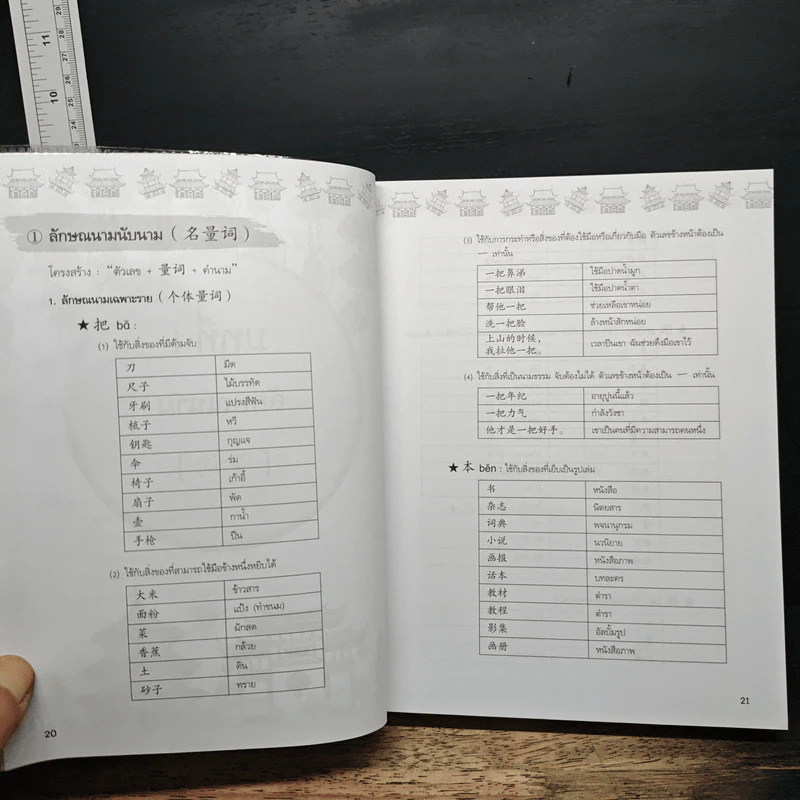 11
10
29
28
27
26
25
24
① ลักษณนามนับนาม (名量词)
โครงสร้าง : "ตัวเลข + 量词 + คำนาม"
1. ลักษณนามเฉพาะราย (个体量词)
★ 把 bǎ :
(1) ใช้กับสิ่งของที่มีด้ามจับ
刀 มีด
尺子 ไม้บรรทัด
牙刷 แปรงสีฟัน
梳子 หวี
钥匙 กุญแจ
伞 ร่ม
椅子 เก้าอี้
扇子 พัด
壶 กาน้ำ
手枪 ปืน
(2) ใช้กับสิ่งของที่สามารถใช้มือข้างหนึ่งหยิบได้
大米 ข้าวสาร
面粉 แป้ง (ทำขนม)
菜 ผักสด
香蕉 กล้วย
土 ดิน
砂子 ทราย
20
(3) ใช้กับการกระทำหรือสิ่งของที่ต้องใช้มือหรือเกี่ยวกับมือ ตัวเลขข้างหน้าต้องเป็น
一 เท่านั้น
一把鼻涕 ใช้มือปาดน้ำมูก
一把眼泪 ใช้มือปาดน้ำตา
帮他一把 ช่วยเหลือเขาหน่อย
洗一把脸 ล้างหน้าสักหน่อย
上山的时候, เวลาปีนเขา ฉันช่วยดึงมือเขาไว้
我拉他一把。
(4) ใช้กับสิ่งที่เป็นนามธรรม จับต้องไม่ได้ ตัวเลขข้างหน้าต้องเป็น 一 เท่านั้น
一把年纪 อายุปูนนี้แล้ว
一把力气 กำลังวังชา
他才是一把好手。 เขาเป็นคนที่มีความสามารถคนหนึ่ง
★ 本 běn : ใช้กับสิ่งของที่เย็บเป็นรูปเล่ม
书 หนังสือ
杂志 นิตยสาร
词典 พจนานุกรม
小说 นวนิยาย
画报 หนังสือภาพ
话本 บทละคร
教材 ตำรา
教程 ตำรา
影集 อัลบั้มรูป
画册 หนังสือภาพ
21